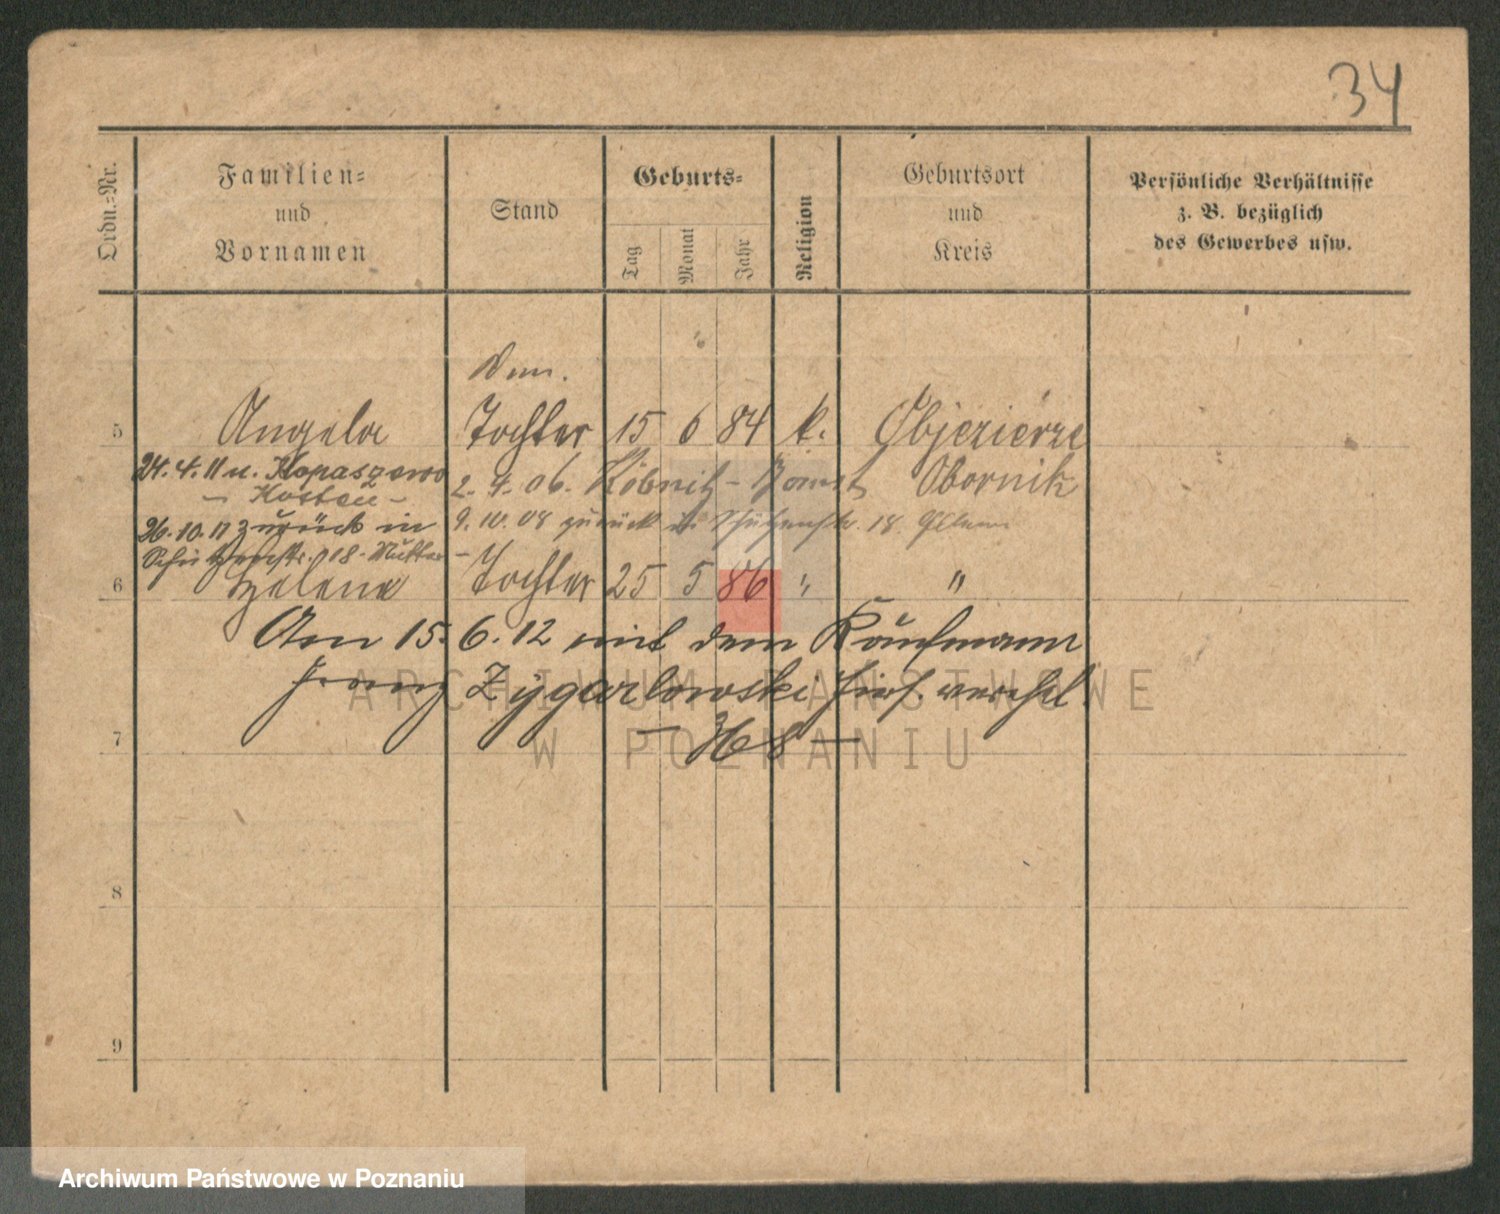 34
Ordn.-Nr.
Familien-
und
Vornamen
Stand
Geburts-
Tag
Monat
Jahr
Religion
Geburtsort
und
Kreis
Persönliche Verhältnisse
z. B. bezüglich
des Gewerbes usw.
5 Angela Tochter 15 6 84 k. Objezierze
24.4.11 n. Kopaszewo 2. 4. 06. Obornik
- Kosten -
26.10.11 zurück in 9. 10. 08 zurück Schützenstr. 18.
Schützenstr. 18 - Mutter -
6 Helena Tochter 25 5 86 " "
Am 15. 6. 12 mit dem Kaufmann
Franz Zygarlowski hies. verehel
- 368 -
7
8
9
ARCHIWUM PAŃSTWOWE
W POZNANIU
Archiwum Państwowe w Poznaniu